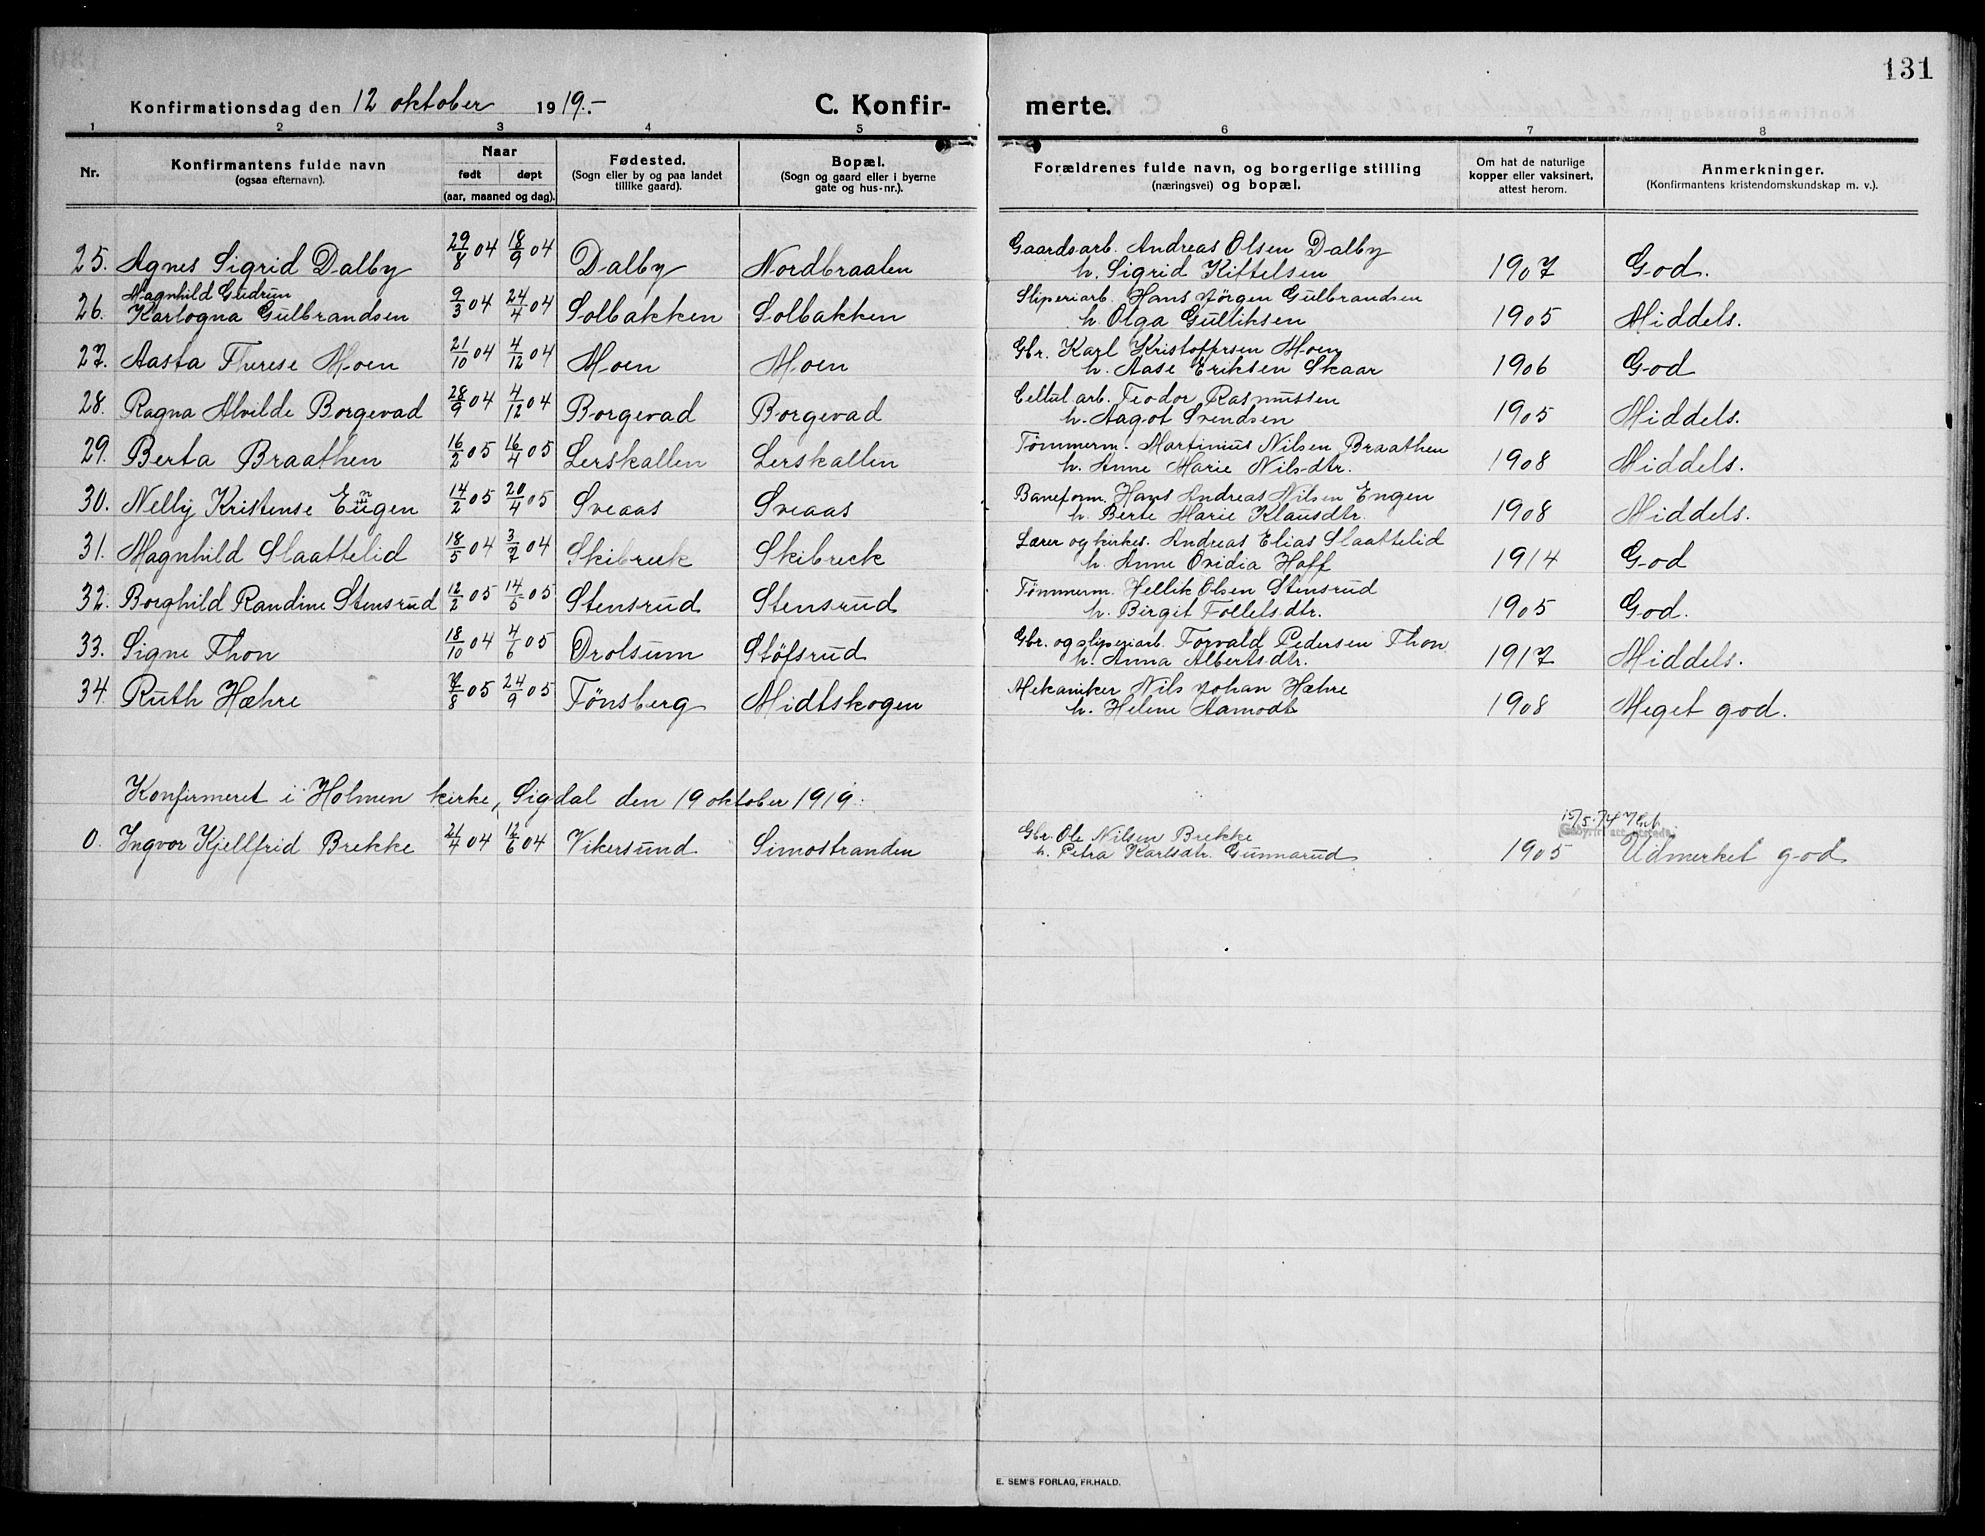 131
Konfirmationsdag den 12 oktober 1919.- C. Konfir- merte.
1 2 3 4 5 6 7 8
Nr. Konfirmantens fulde navn (ogsaa efternavn). Naar født døpt (aar, maaned og dag). Fødested. (Sogn eller by og paa landet tillike gaard). Bopæl. (Sogn og gaard eller i byerne gate og hus-nr.). Forældrenes fulde navn, og borgerlige stilling (næringsvei) og bopæl. Om hat de naturlige kopper eller vaksinert, attest herom. Anmerkninger. (Konfirmantens kristendomskundskap m. v.).
25. Agnes Sigrid Dalby 29/8 04 18/9 04 Dalby Nordbraaten Gaardsarb. Andreas Olsen Dalby
h. Sigrid Kittelsen 1907 God.
26. Magnhild Gudrun
Karlogna Gulbrandsen 9/3 04 24/4 04 Solbakken Solbakken Sliperiarb. Hans Jörgen Gulbrandsen
h. Olga Gulliksen 1905 Middels.
27. Aasta Therese Moen 21/10 04 4/12 04 Moen Moen Gbr. Karl Kristoffersen Moen
h. Aase Eriksen Skaar 1906 God
28. Ragna Alvilde Borgevad 28/9 04 4/12 04 Borgevad Borgevad Cellul arb. Teodor Rasmussen
h. Aagot Svendsen 1905 Middels.
29. Berta Braathen 16/2 05 16/4 05 Lerskallen Lerskallen Tømmerm. Martinius Nilsen Braathen
h. Anne Marie Nilsdtr. 1908 Middels.
30. Nelly Kristense Engen 14/2 05 20/4 05 Sveaas Sveaas Baneform. Hans Andreas Nilsen Engen
h. Berte Marie Klausdtr. 1908 Middels.
31. Magnhild Slaattelid 18/5 04 3/7 04 Skibrek Skibrek Lærer og kirkes. Andreas Elias Slaattelid
h. Anne Ovidia Hoff 1914 God
32. Borghild Randine Stensrud 12/2 05 14/5 05 Stensrud Stensrud Tømmerm. Hellik Olsen Stensrud
h. Birgit Tolleifsdtr. 1905 God.
33. Signe Thon 18/10 04 4/6 05 Drolsum Støfsrud Gbr. og sliperiarb. Torvald Pedersen Thon
h. Anna Albertsdtr. 1917 Middels.
34. Ruth Hæhre /8 05 24/9 05 Tönsberg Midtskogen Mekaniker Nils Johan Hæhre
h. Helene Aamodt 1908 Meget god.
Konfirmeret i Holmen kirke, Sigdal den 19 oktober 1919.
0. Ingvor Kjellfrid Brekke 21/4 04 12/6 04 Vikersund Simostranden Gbr. Ole Nilsen Brekke
h. Petra Karlsdtr. Gunnarud 1905 15/5-74 Udmerket god
E. SEM'S FORLAG, FR.HALD.